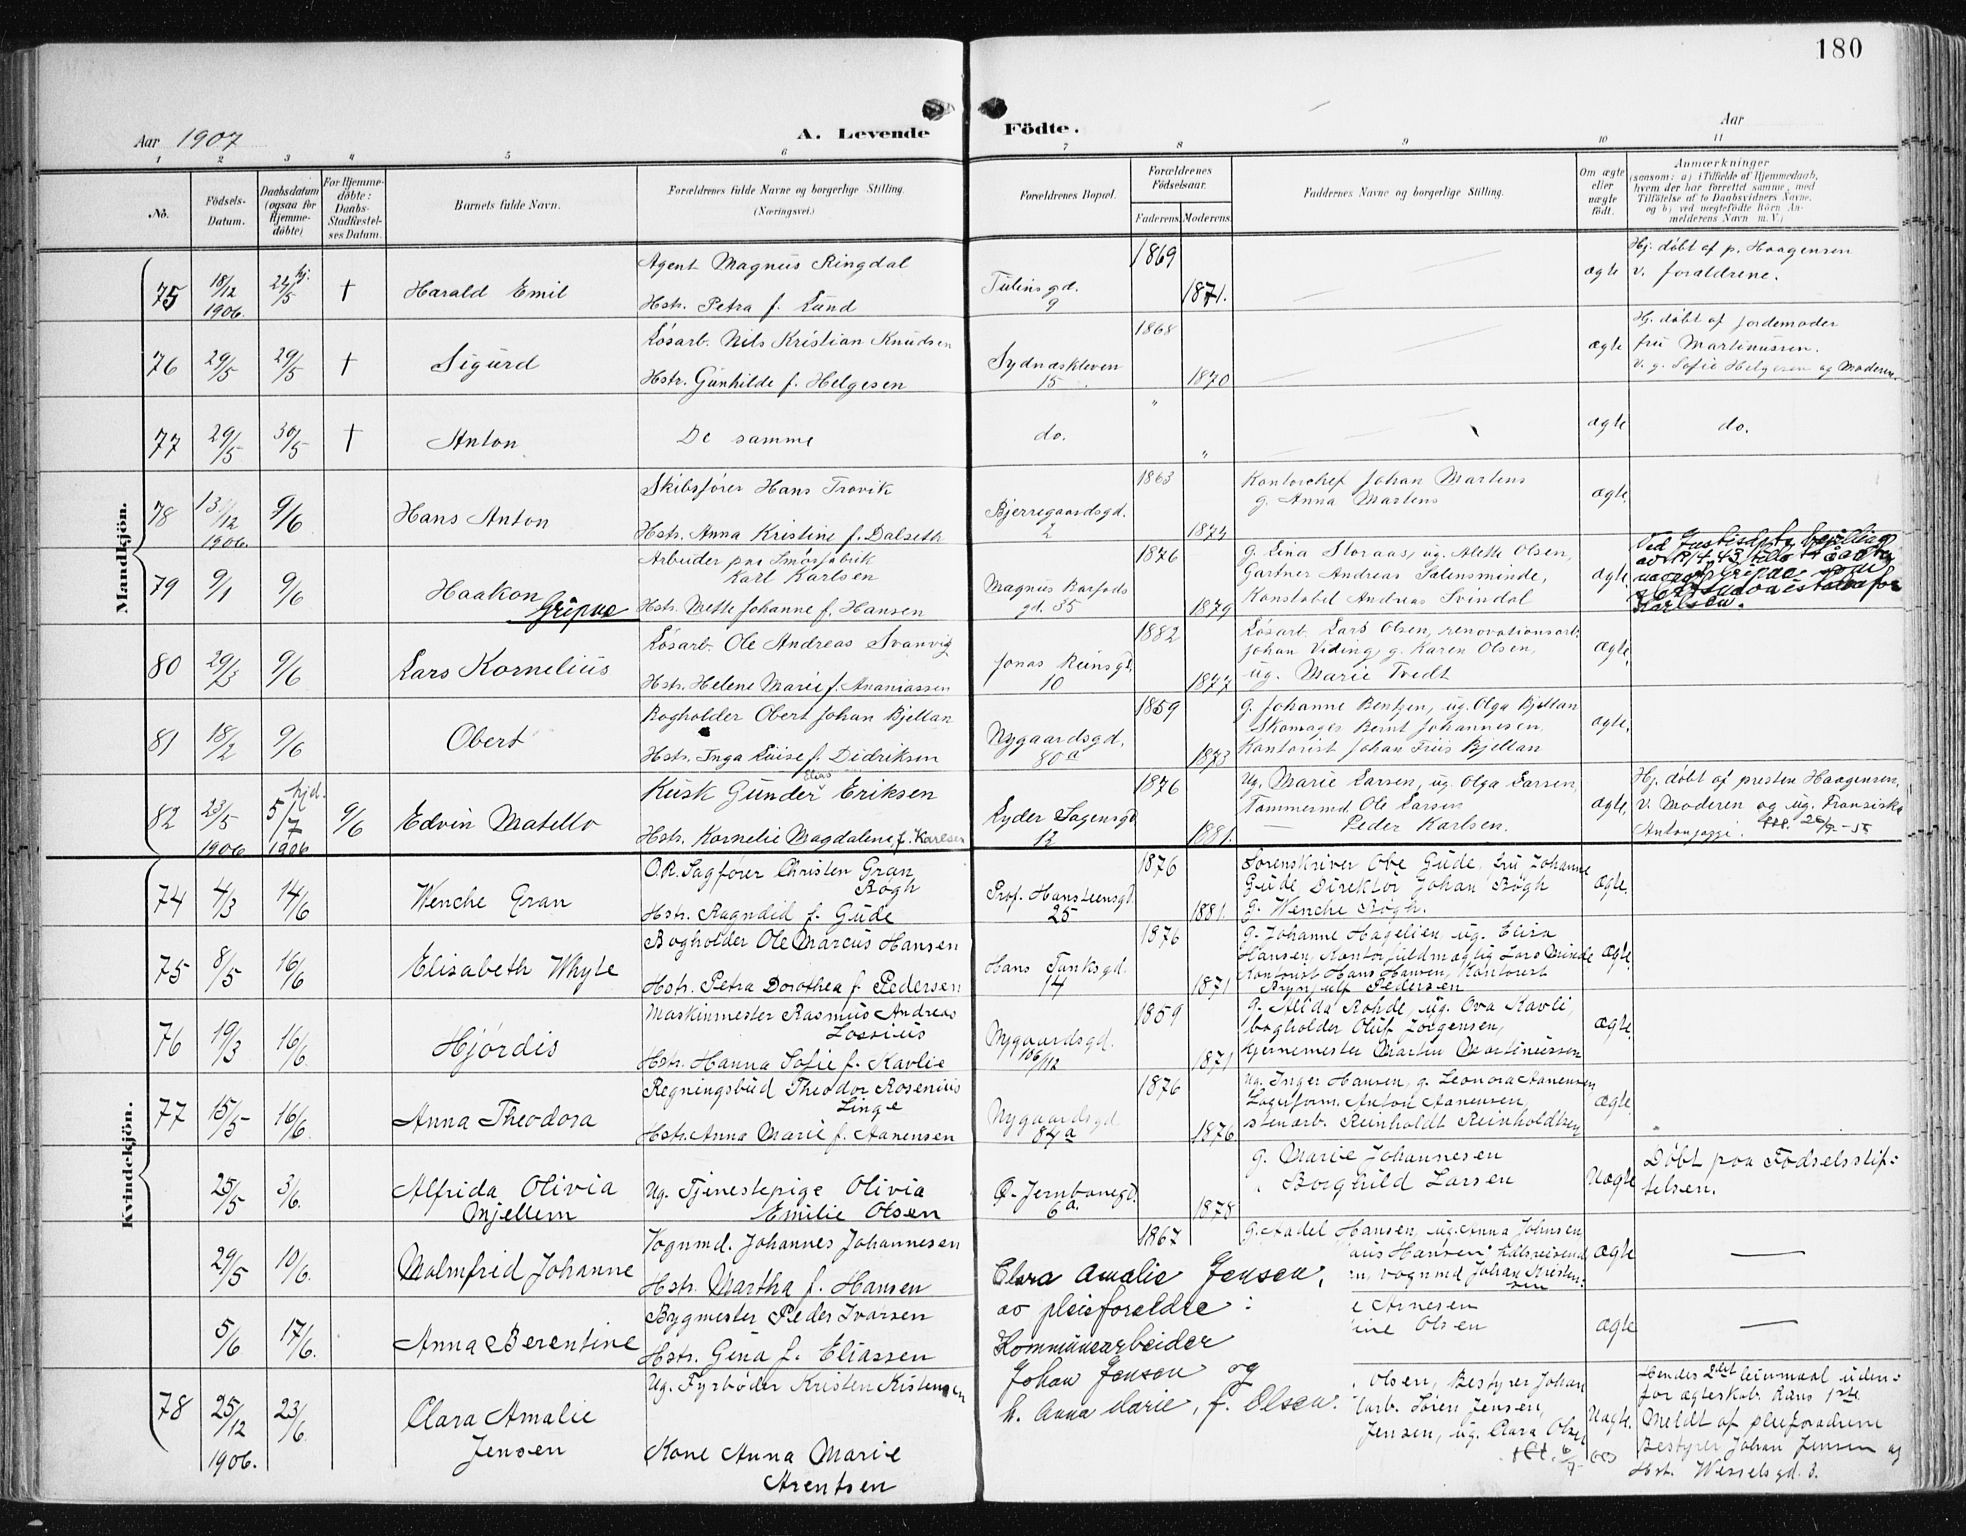 180
Aar 1907
A. Levende Födte.
Aar
1 2 3 4 5 6 7 8 9 10 11
No.
Födsels-Datum.
Daabsdatum (ogsaa for Hjemme-döbte)
For Hjemme-döbte: Daabs-Stadfæstel-ses Datum.
Barnets fulde Navn.
Forældrenes fulde Navne og borgerlige Stilling. (Næringsvei.)
Forældrenes Bopæl.
Forældrenes Födselsaar.
Faderens. Moderens.
Faddernes Navne og borgerlige Stilling.
Om ægte eller uægte födt.
Anmærkninger
(saasom: a) i Tilfælde af Hjemmedaab,
hvem der har forrettet samme, med
Tilföielse af to Daabsvidners Navne,
og b) ved uægtefödte Börn An-
melderens Navn m. V.)
Mandkjön.
75 18/12 1906. 24/5 hj. † Harald Emil
Agent Magnus Ringdal
Hstr. Petra f. Lund
Tulinsgd. 9
1869 1871.
ægte
Hj. döbt af p. Haagensen
v. forældrene.
76 29/5 29/5 † Sigurd
Lösarb. Nils Kristian Knudsen
Hstr. Gunhilde f. Helgesen
Sydnæskleven 15
1868 1870
ægte
Hj. döbt af jordemoder
fru Martinussen.
v. g. Sofie Helgesen og Moderen.
77 29/5 30/5 † Anton
De samme
do.
" "
ægte
do.
78 13/12 1906. 9/6 Hans Anton
Skibsförer Hans Trovik
Hstr. Anna Kristine f. Dalseth
Bjerregaardsgd. 2
1863
Kontorchef Johan Martens
g. Anna Martens
ægte.
79 9/1 9/6 Haakon Gripne
Arbeider paa Smörfabrik
Karl Karlsen
Hstr. Mette Johanne f. Hansen
Magnus Barfods gd. 35
1876 1879
g. Lina Storaas, ug. Alette Olsen,
Gartner Andreas Salensminde,
Konstabel Andreas Svindal
ægte
Karlsen.
80 29/3 9/6 Lars Kornelius
Lösarb. Ole Andreas Svanvig
Hstr. Helene Marie f. Ananiassen
Jonas Reinsgd. 10
1882 1877
Lösarb. Lars Olsen, renovationsarb.
Johan Viding, g. Karen Olsen,
ug. Marie Tvedt
ægte.
81 18/2 9/6 Obert
Bogholder Obert Johan Bjellan
Hstr. Inga Luise f. Didriksen
Nygaardsgd. 80a
1859 1873
g. Johanne Bentzen, ug. Olga Bjellan
Skomager Bernt Johannesen,
Kontorist Johan Friis Bjellan
ægte.
82 23/5 1906 hjd. 5/7 1906 9/6 Edvin Matello
Kusk Gunder Elias Eriksen
Hstr. Kornelie Magdalene f. Karlsen
Lyder Sagensgd 12
1876 1881.
Ug. Marie Larsen, ug. Olga Larsen,
Tömmermd. Ole Larsen
— Peder Karlsen.
ægte.
Hj. döbt af presten Haagensen,
v. Moderen og ug. Fransiska
Kvindekjön.
74 4/3 14/6 Wenche Gran
O.R. Sagförer Christen Gran
Bögh
Hstr. Ragndid f. Gude
Prof. Hansteensgd. 25
1876 1881.
Sorenskriver Ove Gude, fru Johanne
Gude, Direktör Johan Bögh
g. Wenche Bögh.
ægte.
75 8/5 16/6 Elisabeth Whyte
Bogholder Ole Marcus Hansen
Hstr. Petra Dorothea f. Pedersen
Hans Tanksgd. 14
1876 1871
g. Johanne Hagelien, ug. Elisa
Hansen, Kontorfuldmægtig Lars Minde
Kontorist Hans Hansen, Kontorist
Brynjulf Pedersen
ægte.
76 19/3 16/6 Hjördis
Maskinmester Rasmus Andreas
Lossius
Hstr. Hanna Sofie f. Kavlie
Nygaardsgd. 106/112
1859 1871
g. Alida Rohde, ug. Ova Kavli,
bogholder Oluf Jörgensen,
Hjernemester Martin Martinussen
ægte.
77 15/5 16/6 Anna Theodora
Regningsbud Theodor Rosenius
Linge
Hstr. Anna Marie f. Aanensen
Nygaardsgd 84a
1876 1876
ug. Inger Hansen, g. Leonora Aanensen
Lagerform. Anton Aanensen,
stenarb. Reinholdt Reinholdtsen
ægte.
25/5 3/6. Alfrida Olivia
Mjellem
Ug. Tjenestepige Olivia
Emilie Olsen
Ø. Jernbanegd. 6a.
1878
g. Marie Johannesen
" Borghild Larsen
Uægte
Döbt paa Födselsstif-
telsen.
29/5 10/6. Malmfrid Johanne
Vognmd. Johannes Johannesen
Hstr. Martha f. Hansen
1867
g. Aadel Hansen, ug. Anna Johnsen,
aus Hansen, Handelsreisend
n, vognmd Johan Kristen-
sen
ægte
—
5/6 17/6. Anna Berentine
Bygmester Peder Ivarsen
Hstr. Gina f. Eliassen
e Arnesen
ine Olsen
ægte
—
Clara Amalie Jensen,
av pleieforeldre:
Kommunearbeider
Johan Jensen og
h. Anna Marie, f. Olsen.
78 25/12 1906. 23/6. Clara Amalie
Jensen
Ug. Fyrböder Kristen Kistensen
Kone Anna Marie
Arentsen
Olsen, Bestyrer Johan
arb. Sören Jensen,
Jensen, ug. Clara Olsen
Uægte.
Hendes 2det leiermaal uden-
for ægteskab. Hans 1ste
Meldt af pleiforældrene
Bestyrer Johan Jensen og
Hst. Wesselsgd. 3.